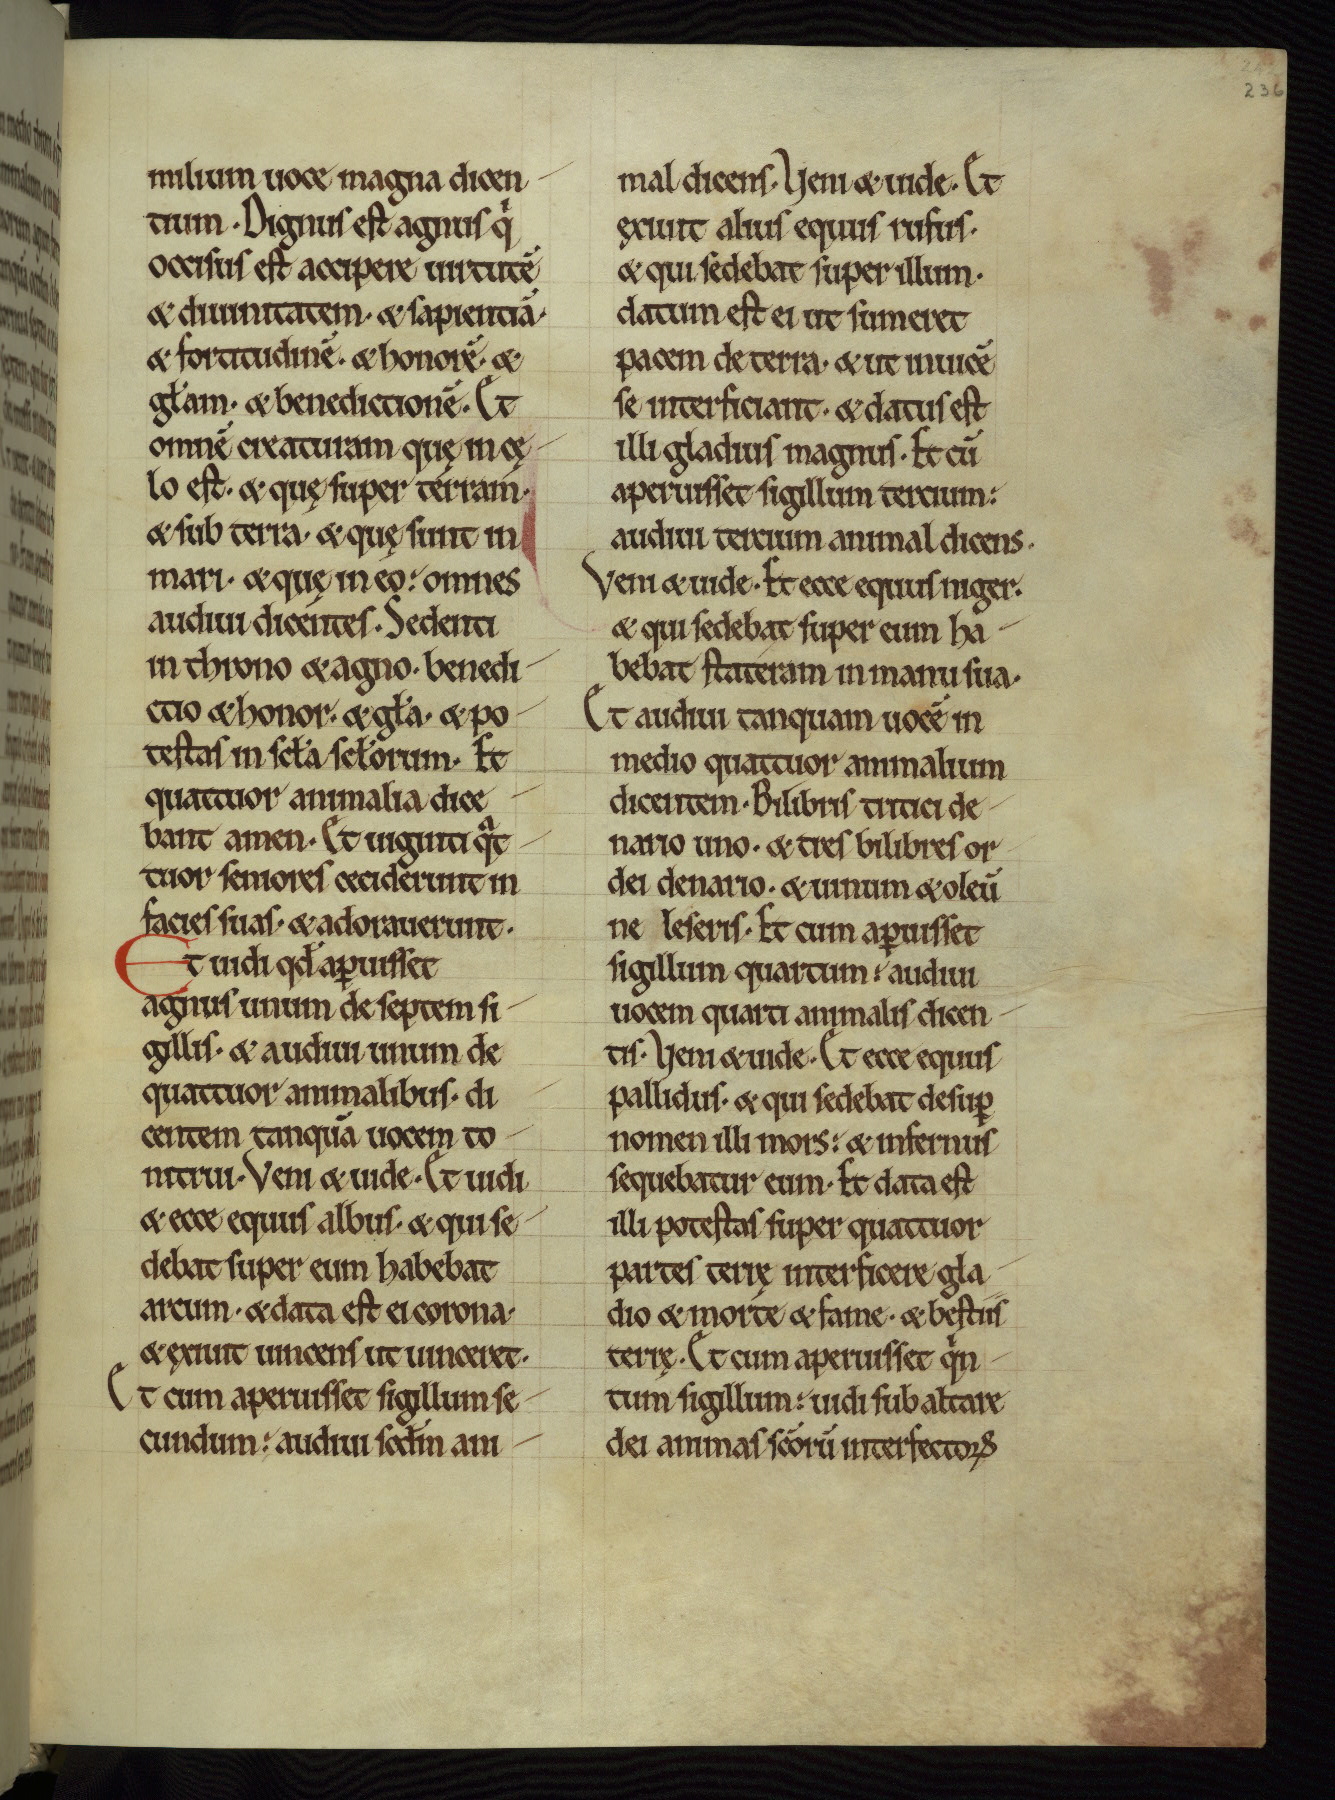 236
milium uoce magna dicen
tium. Dignus est agnus qͥ
occisus est accipere uirtutē
& diuinitatem. & sapientiā.
& fortitudinē. & honorē. &
głam. & benedictionē. Et
omnē creaturam quę in cę
lo est. & quę super terram.
& sub terra. & quę sunt in
mari. & quę in eo: omnes
audiui dicentes. Sedenti
in throno & agno. benedi
ctio & honor. & gła. & po
testas in scła scłorum. Et
quattuor animalia dice
bant amen. Et uiginti qͣt
tuor seniores ceciderunt in
facies suas. & adorauerunt.
Et uidi qđ aꝑuisset
agnus unum de septem si
gillis. & audiui unum de
quattuor animalibus. di
centem tanquā uocem to
nitrui. Veni & uide. Et uidi
& ecce equus albus. & qui se
debat super eum habebat
arcum. & data est ei corona.
& exiuit uincens ut uinceret.
Et cum aperuisset sigillum se
cundum: audiui scđm ani
mal dicens. Veni & uide. Et
exiuit alius equus rufus.
& qui sedebat super illum.
datum est ei ut sumeret
pacem de terra. & ut inuicē
se interficiant. & datus est
illi gladius magnus. Et cū
aperuisset sigillum tercium:
audiui tercium animal dicens.
Veni & uide. Et ecce equus niger.
& qui sedebat super eum ha
bebat stateram in manu sua.
Et audiui tanquam uocē in
medio quattuor animalium
dicentem. Bilibris tritici de
nario uno. & tres bilibres or
dei denario. & uinum & oleū
ne leseris. Et cum aꝑuisset
sigillum quartum: audiui
uocem quarti animalis dicen
tis. Veni & uide. Et ecce equus
pallidus. & qui sedebat desuꝑ
nomen illi mors: & infernus
sequebatur eum. Et data est
illi potestas super quattuor
partes terrę interficere gla
dio & morte & fame. & bestiis
terrę. Et cum aperuisset qͥn
tum sigillum: uidi sub altare
dei animas scōrū interfectoꝝ